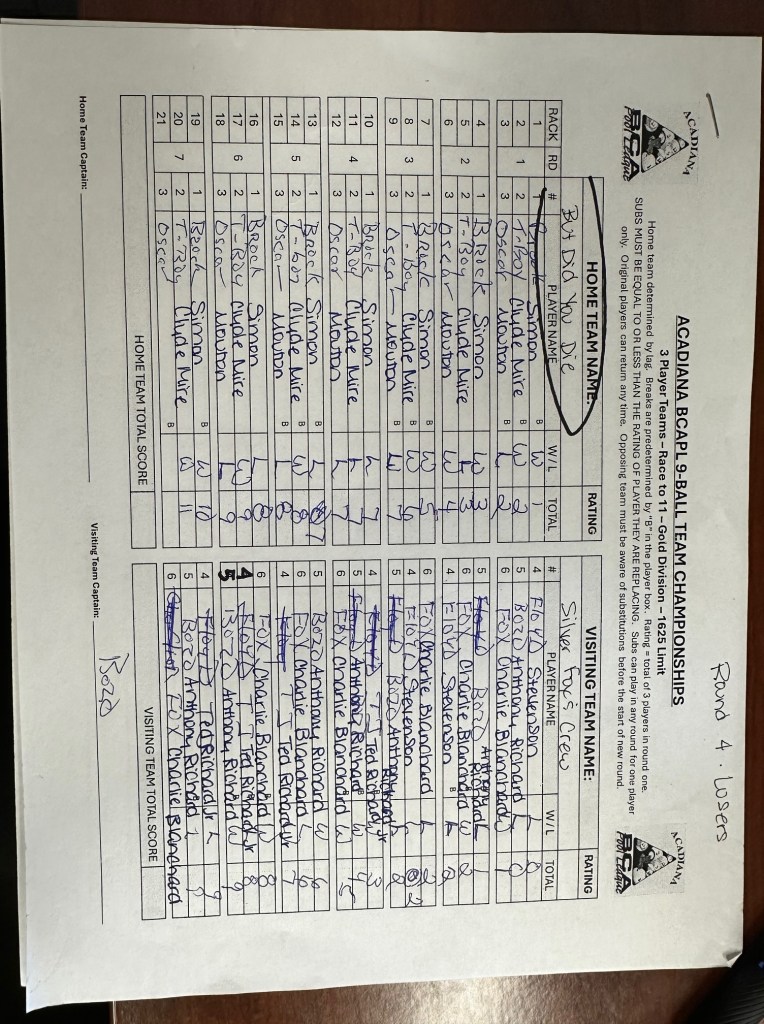 Round 4 - Losers
ACADIANA
BCA
Pool League
ACADIANA BCAPL 9-BALL TEAM CHAMPIONSHIPS
3 Player Teams – Race to 11 – Gold Division – 1625 Limit
ACADIANA
BCA
Pool League
Home team determined by lag. Breaks are predetermined by "B" in the player box. Rating = total of 3 players in round one.
SUBS MUST BE EQUAL TO OR LESS THAN THE RATING OF PLAYER THEY ARE REPLACING. Subs can play in any round for one player
only. Original players can return any time. Opposing team must be aware of substitutions before the start of new round.
HOME TEAM NAME: RATING VISITING TEAM NAME: RATING
But Did You Die Silver Fox's Crew
RACK RD # PLAYER NAME W/L TOTAL # PLAYER NAME W/L TOTAL
1 1 Brock Simon B W 1 4 Floyd Stevenson L 0
2 1 2 T-Boy Clyde Mire B W 2 5 Bozo Anthony Richard L 0
3 3 Oscar Mouton B L 2 6 Fox Charlie Blanchard W 1
4 1 Brock Simon W 3 5 Bozo Anthony Richard L 1
5 2 2 T-Boy Clyde Mire L 3 6 Fox Charlie Blanchard W 2
6 3 Oscar Mouton W 4 4 Floyd Stevenson B L 2
7 1 Brock Simon B W 5 6 Fox Charlie Blanchard L 2
8 3 2 T-Boy Clyde Mire B W 6 4 Floyd Stevenson L 2
9 3 Oscar Mouton B W 7 5 Bozo Anthony Richard L 2
10 1 Brock Simon L 7 4 TJ Ted Richard Jr W 3
11 4 2 T-Boy Clyde Mire L 7 5 Anthony Richard B W 4
12 3 Oscar Mouton L 7 6 Fox Charlie Blanchard W 5
13 1 Brock Simon B L 7 5 Bozo Anthony Richard W 6
14 5 2 T-boy Clyde Mire B W 8 6 Fox Charlie Blanchard L 6
15 3 Oscar Mouton B L 8 4 TJ Ted Richard Jr 7
16 1 Brock Simon L 8 6 Fox Charlie Blanchard W 8
17 6 2 T-Boy Clyde Mire W 9 4 TJ Ted Richard Jr 8
18 3 Oscar Mouton L 9 5 Bozo Anthony Richard W 9
19 1 Brock Simon B W 10 4 Ted Richard Jr L 9
20 7 2 T-Boy Clyde Mire B W 11 5 Bozo Anthony Richard L 9
21 3 Oscar 6 Fox Charlie Blanchard
HOME TEAM TOTAL SCORE VISITING TEAM TOTAL SCORE
Home Team Captain: Visiting Team Captain: Bozo